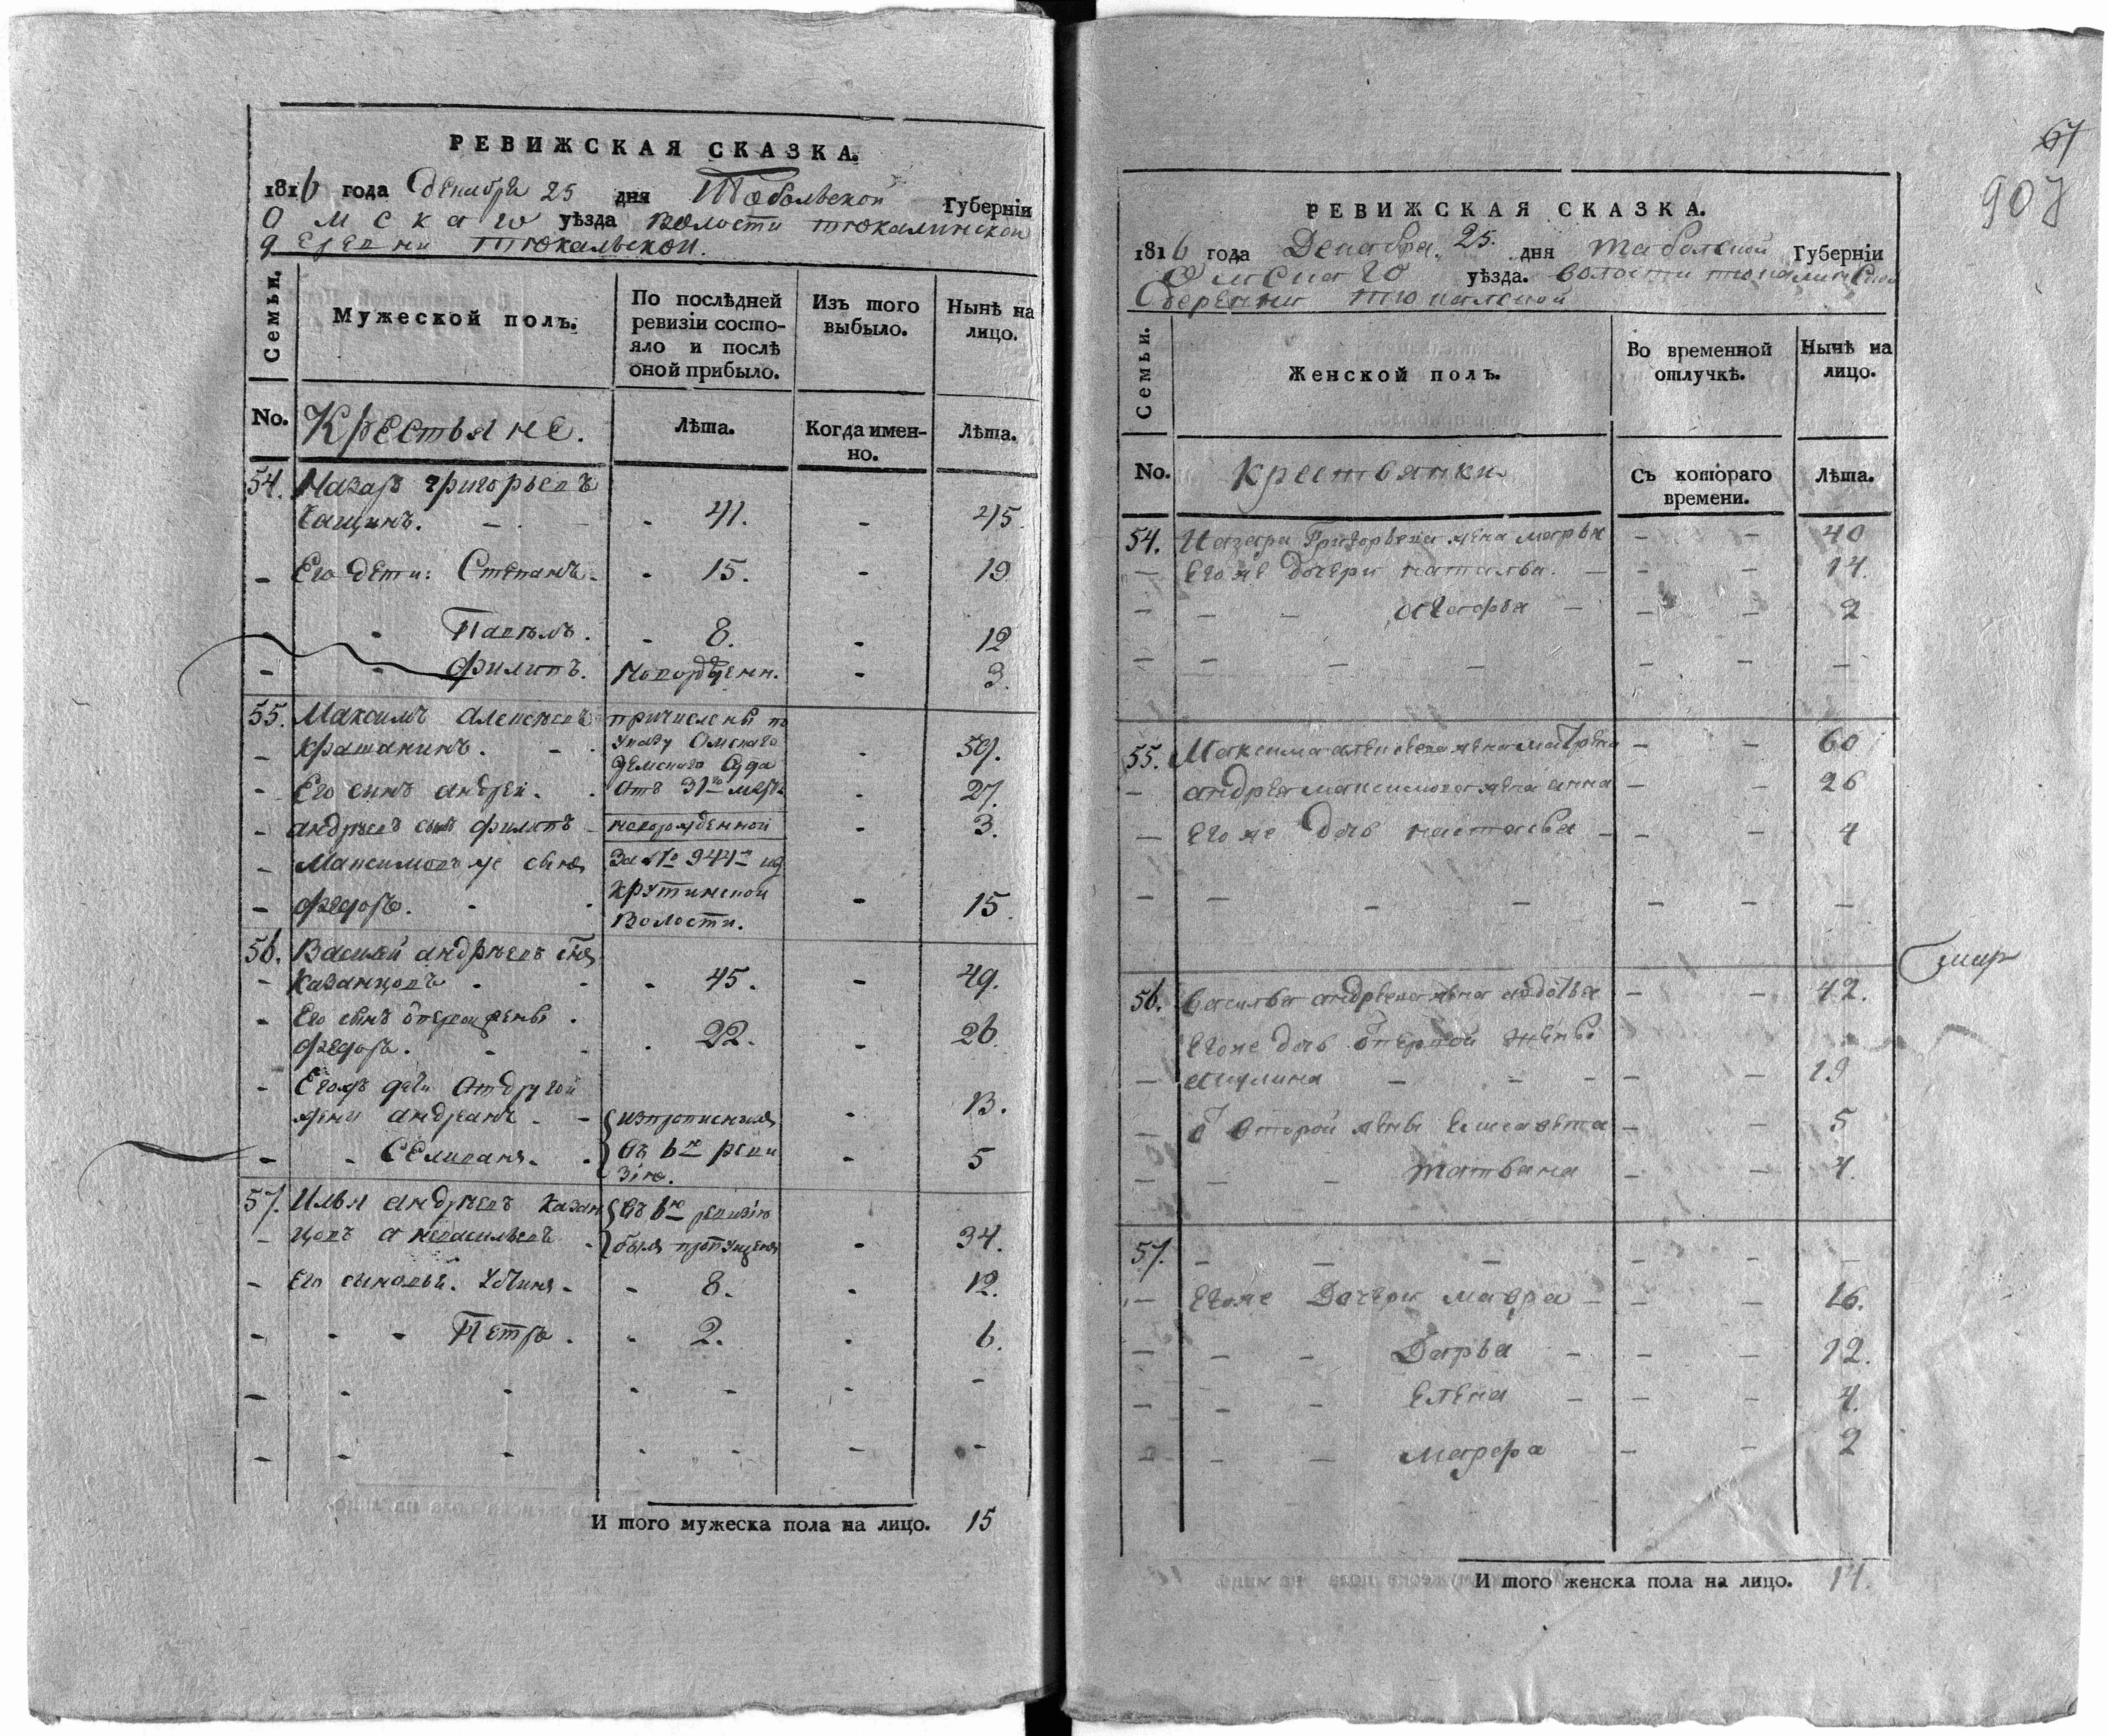 РЕВИЖСКАЯ СКАЗКА.
1816 года Декабря 25 дня Тобольской Губернїи
Омскаго уѣзда волости тюкалинской
деревни тюкальской.
Семьи.
Мужеской полъ.
По послѣдней ревизїи состо-
яло и послѣ
оной прибыло.
Изъ того
выбыло.
Нынѣ на
лицо.
No. Крестьяне. Лѣта. Когда имен-
но. Лѣта.
54. Назаръ григорьевъ
Сащинъ. - - 41. - 45
- Его дети: Степанъ - - 15. - 19
- - Павелъ. - 8. - 12
- - Филипъ. Новорожденн. - 3.
55. Максимъ алексѣевъ причислены по
- Крашанинъ. - - указу Омскаго - 59.
земскаго Суда
- Его сынъ андреи. - отъ 31го марта - 27.
- андрѣевъ сынъ филипъ - новорожденной - 3.
- Максимовъ же сынъ За No 944м из
- федоръ. - - Крутинской - 15.
волости.
56. Василей андрѣевъ сынъ
- Казанцовъ - - - 45. - 49.
- Его сынъ от первой жены -
федоръ. - - - 22. - 26.
- Егожъ дети от другой
жены андреанъ. - - 13.
- - Селиванъ. - въ 6ю реви - 5
зїю.
57. Илья андрѣевъ Казан въ 6ю ревизїю
- цовъ а невасильевъ - былъ пропущенъ - 34.
- Его сыновьи. - - 8. - 12.
- - - Петръ. - 2. - 6.
- - - - - - -
- - - - - - -
И того мужеска пола на лицо. 15
67
907
РЕВИЖСКАЯ СКАЗКА.
1816 года Декабря 25. дня табольской Губернїи
Омскаго уѣзда. волости тюкалинской
деревни тюкалской
Семьи.
Женской полъ.
Во временной
отлучкѣ.
Нынѣ на
лицо.
No. крестьянки Съ котораго
времени. Лѣта.
54. Назара Григорьева жена марья - - 40
- Его же дочери наталья - - - 14.
- - - агафья - - - 2
- - - - - - -
55. Максима алексеева жена матрена - - 60
- андрея максимова жена анна - - 26
- Его же дочь настасья - - - 4
- - - - - - -
56. василья андреева жена авдотья - - 42.
Его же дочь от первой жены
- акулина - - - - - 19
- от второй жены елисавета - - 5
- - - татьяна - - 4.
57. - - - - - -
- Его же Дочери мавра - - - 16.
- - - Дарья - - - 12.
- - - елена - - - 4.
- - - марфа - - 2
И того женска пола на лицо. 14.